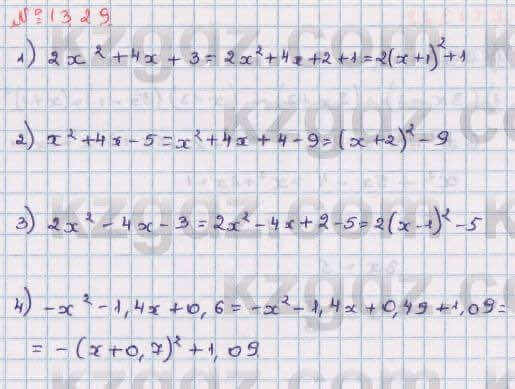 № 1329
1) 2x² + 4x + 3 = 2x² + 4x + 2 + 1 = 2(x+1)² + 1
2) x² + 4x - 5 = x² + 4x + 4 - 9 = (x+2)² - 9
3) 2x² - 4x - 3 = 2x² - 4x + 2 - 5 = 2(x-1)² - 5
4) -x² - 1,4x + 0,6 = -x² - 1,4x + 0,49 + 1,09 =
= - (x+0,7)² + 1,09